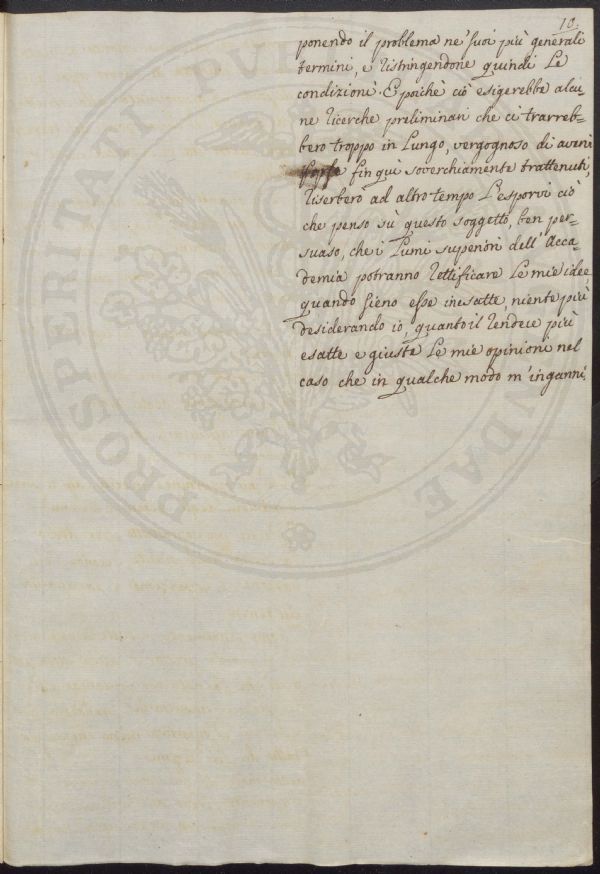 10.
ponendo il problema ne' suoi più generali
termini, e ristringendone quindi le
condizioni. E poichè ciò esigerebbe alcu
ne ricerche preliminari che ci trarreb=
bero troppo in lungo, vergognoso di avervi
forse fin quì soverchiamente trattenuti,
riserberò ad altro tempo l'esporvi ciò
che penso sù questo soggetto, ben per=
suaso, che i lumi superiori dell'Acca=
demia potranno rettificare le mie idee,
quando sieno esse inesatte, niente più
desiderando io, quanto il rendere più
esatte e giuste le mie opinioni nel
caso che in qualche modo m'inganni.
PROSPERITATI PUBLICAE AUGENDAE